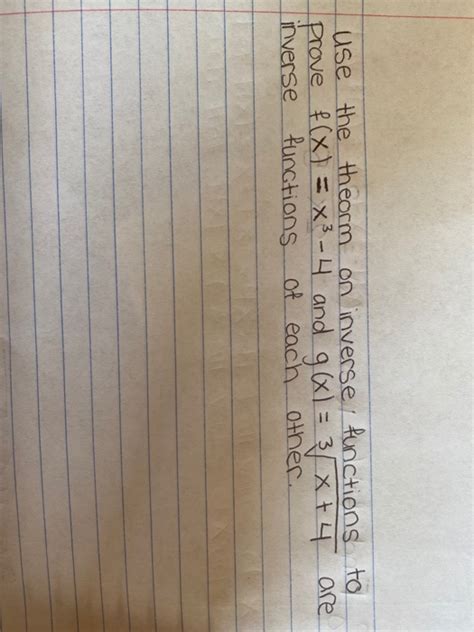 use the theorm on inverse functions to
prove f(x) = x³-4 and g(x) = ³√x+4 are
inverse functions of each other.